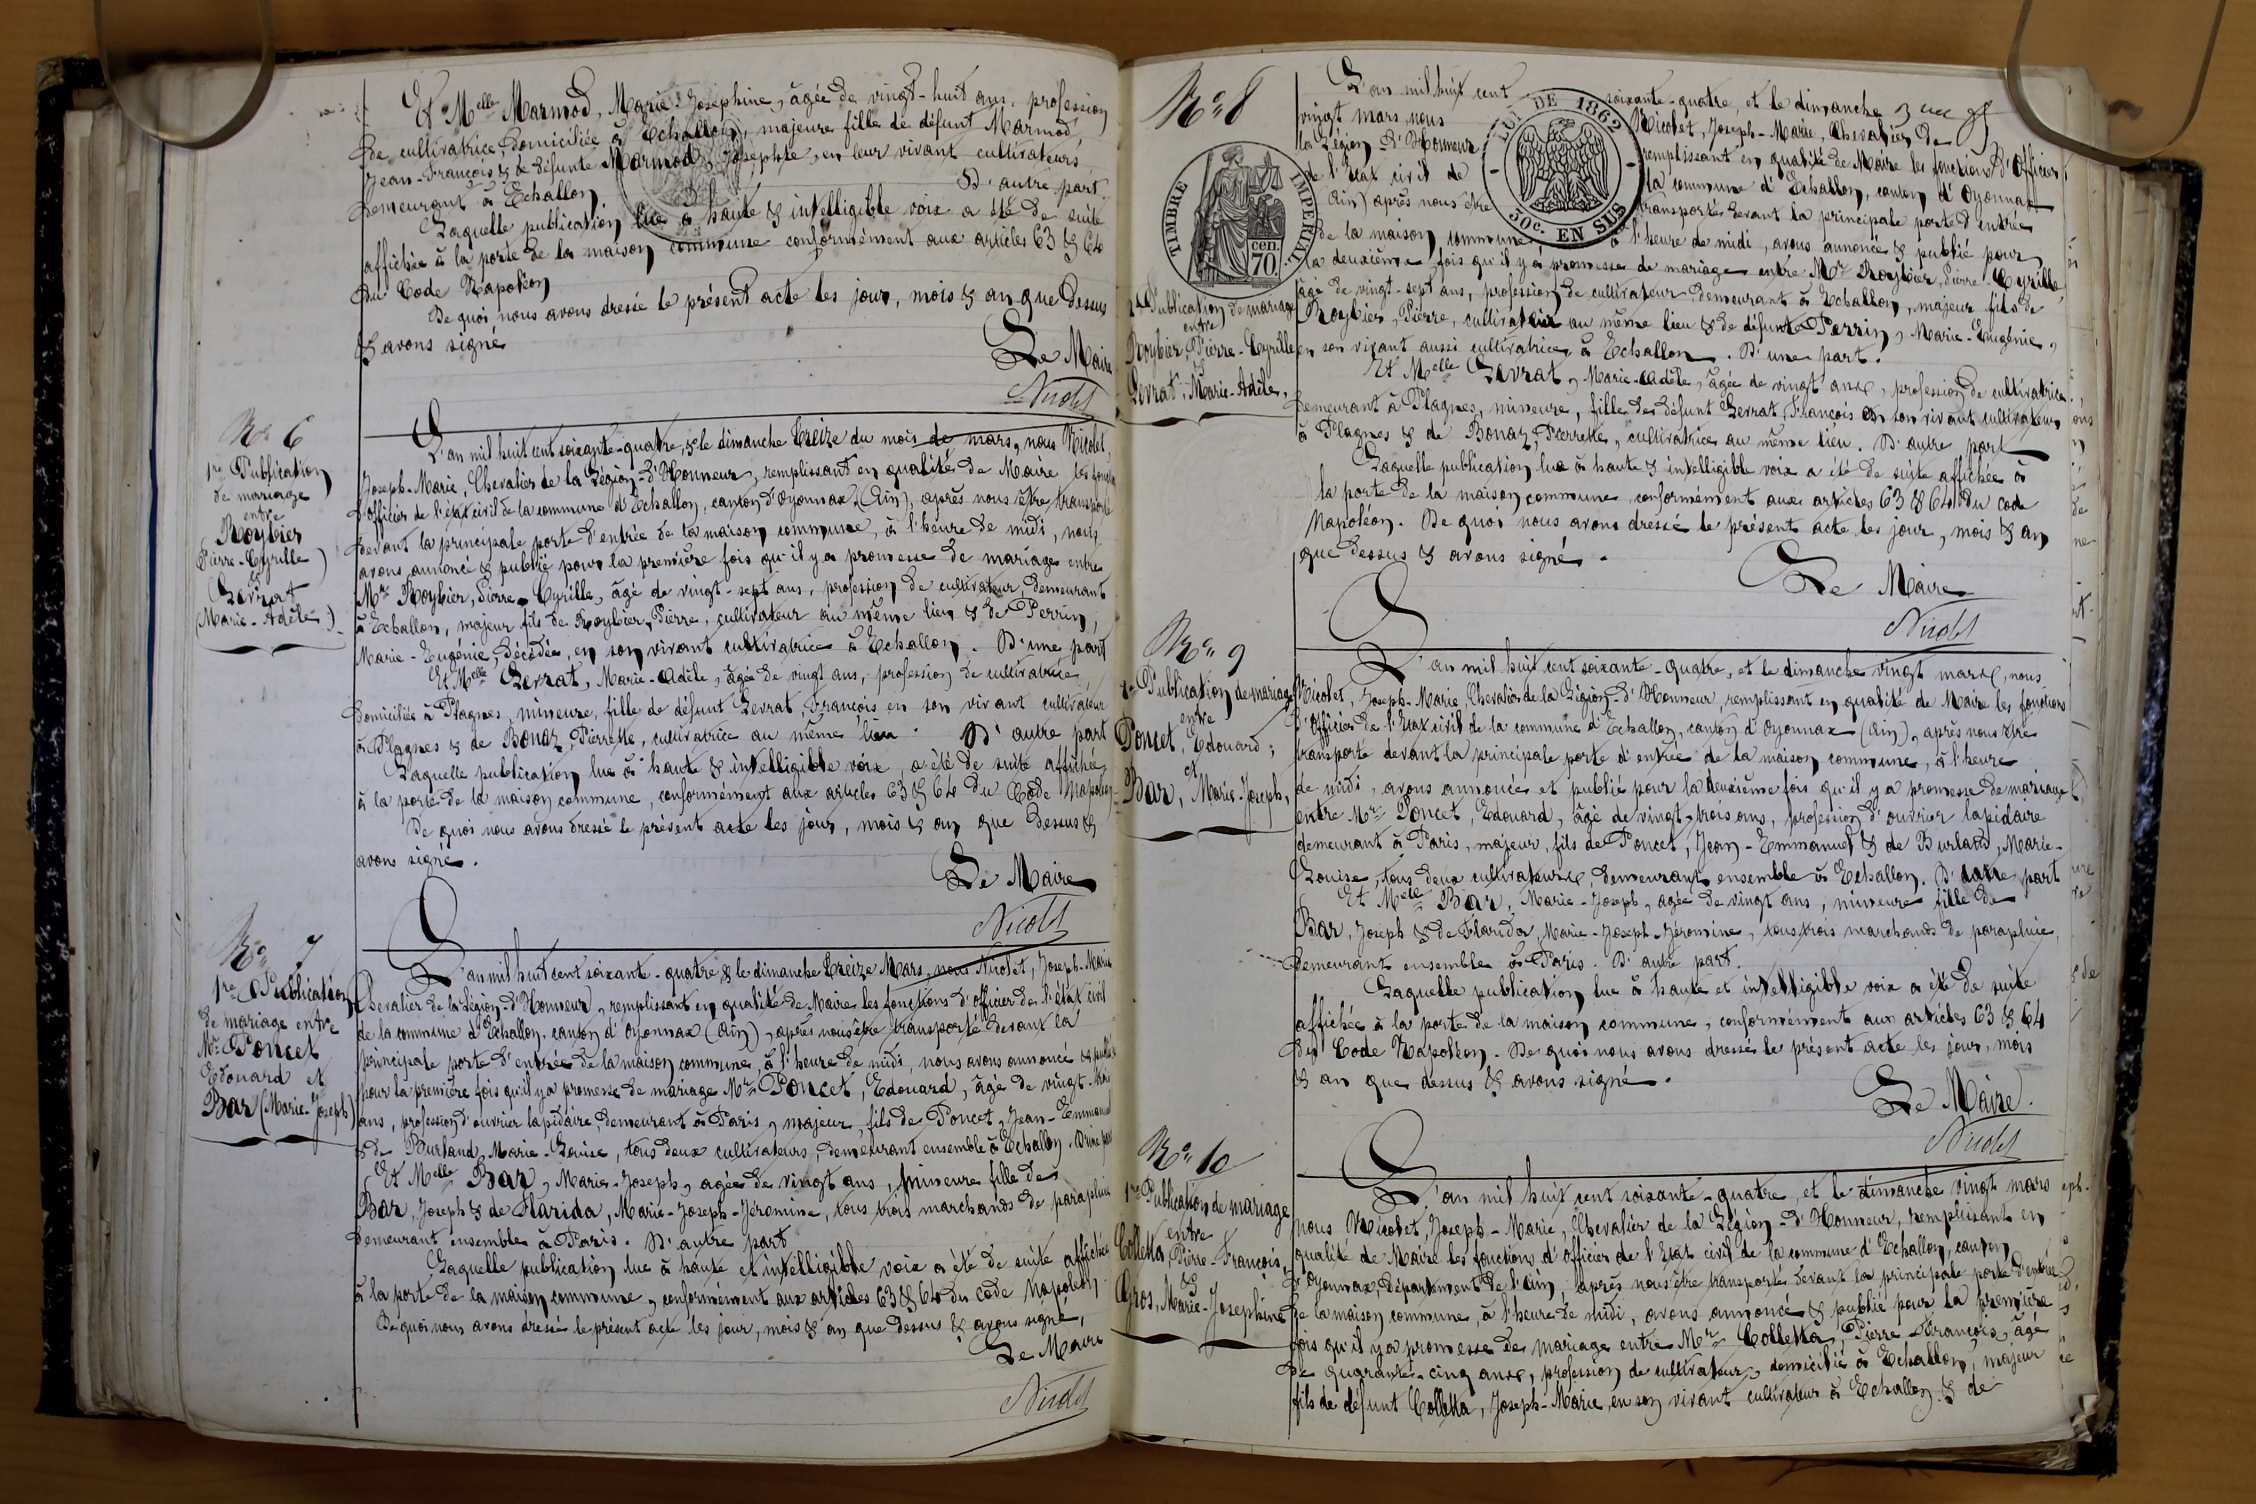 Et Melle Marmod, Marie-Josephine, âgée de vingt-huit ans, profession
de cultivatrice, domiciliée à Echallon, majeure fille de défunt Marmod
Jean-François & de défunte Marmod, Josephte, en leur vivant cultivateurs
demeurant à Echallon. D'autre part
Laquelle publication lue à haute & intelligible voix a été de suite
affichée à la porte de la maison commune conformément aux articles 63 & 64
du Code Napoléon
De quoi nous avons dressé le présent acte les jour, mois & an que dessus
& avons signé
Le Maire
Nicolet
No 6
1re Publication
de mariage
entre
Roybier
(Pierre-Cyrille)
et
Levrat
(Marie-Adèle)
L'an mil huit cent soixante-quatre, & le dimanche treize du mois de mars, nous Nicolet,
Joseph-Marie, Chevalier de la Légion-d'Honneur, remplissant en qualité de Maire les
d'officier de l'état civil de la commune d'Echallon, canton d'Oyonnax (Ain), après nous être transporté
devant la principale porte d'entrée de la maison commune, à l'heure de midi, nous
avons annoncé & publié pour la première fois qu'il y a promesse de mariage entre
Mr Roybier, Pierre-Cyrille, âgé de vingt-sept ans, profession de cultivateur, demeurant
à Echallon, majeur fils de Roybier, Pierre, cultivateur au même lieu & de Perrin,
Marie-Eugénie, décédée, en son vivant cultivatrice à Echallon. D'une part
Et Melle Levrat, Marie-Adèle, âgée de vingt ans, profession de cultivatrice
domiciliée à Plagnes, mineure, fille de défunt Levrat, François en son vivant cultivateur
à Plagnes & de Bonaz, Pierrette, cultivatrice au même lieu. D'autre part
Laquelle publication lue à haute & intelligible voix, a été de suite affichée
à la porte de la maison commune, conformément aux articles 63 & 64 du Code Napoléon
De quoi nous avons dressé le présent acte les jour, mois & an que dessus &
avons signé.
Le Maire
Nicolet
No 7
1re Publication
de mariage entre
Mr Poncet
Edouard et
Bar (Marie-Joseph)
L'an mil huit cent soixante-quatre & le dimanche treize Mars, nous Nicolet, Joseph-Marie
Chevalier de la Légion-d'Honneur, remplissant en qualité de Maire les fonctions d'officier de l'état civil
de la commune d'Echallon, canton d'Oyonnax (Ain), après nous être transporté devant la
principale porte d'entrée de la maison commune, à l'heure de midi, nous avons annoncé & publié
pour la première fois qu'il y a promesse de mariage Mr Poncet, Edouard, âgé de vingt-trois
ans, profession d'ouvrier lapidaire, demeurant à Paris, majeur, fils de Poncet, Jean-Emmanuel
& de Burland, Marie-Louise, tous deux cultivateurs, demeurant ensemble à Echallon. D'une part
Et Melle Bar, Marie-Joseph, agée de vingt ans, mineure fille de
Bar, Joseph & de Flarida, Marie-Joseph-Jéromine, tous trois marchands de parapluie
demeurant ensemble à Paris. D'autre part
Laquelle publication lue à haute et intelligible voix a été de suite affichée
à la porte de la maison commune, conformément aux articles 63 & 64 du Code Napoléon
De quoi nous avons dressé le présent acte les jour, mois & an que dessus & avons signé,
Le Maire
Nicolet
No 8
TIMBRE IMPERIAL
cen. 70
LOI DE 1862
50c. EN SUS
2e Publication de mariage
entre
Roybier, Pierre-Cyrille
&
Levrat, Marie-Adèle,
L'an mil huit cent soixante-quatre, et le dimanche
vingt mars, nous Nicolet, Joseph-Marie, Chevalier de
la Légion-d'Honneur remplissant en qualité de Maire les fonctions d'Officier
de l'état civil de la commune d'Echallon, canton d'Oyonnax
(Ain) après nous être transporté devant la principale porte d'entrée
de la maison commune à l'heure de midi, avons annoncé & publié pour
la deuxième fois qu'il y a promesse de mariage entre Mr Roybier, Pierre-Cyrille,
âgé de vingt-sept ans, profession de cultivateur demeurant à Echallon, majeur fils de
Roybier, Pierre, cultivateur au même lieu & de défunte Perrin, Marie-Eugénie,
en son vivant aussi cultivatrice à Echallon. D'une part.
Et Melle Levrat, Marie-Adèle, âgée de vingt ans, profession de cultivatrice,
demeurant à Plagnes, mineure, fille de défunt Levrat, François en son vivant cultivateur
à Plagnes & de Bonaz, Pierrette, cultivatrice au même lieu. D'autre part
Laquelle publication lue à haute & intelligible voix a été de suite affichée à
la porte de la maison commune, conformément aux articles 63 & 64 du Code
Napoléon. De quoi nous avons dressé le présent acte les jour, mois & an
que dessus & avons signé.
Le Maire
Nicolet
No 9
2e Publication de mariage
entre
Poncet, Edouard,
et
Bar, Marie-Joseph,
L'an mil huit cent soixante-quatre, et le dimanche vingt mars, nous
Nicolet, Joseph-Marie, Chevalier de la Légion-d'Honneur, remplissant en qualité de Maire les fonctions
d'Officier de l'Etat civil de la commune d'Echallon, canton d'Oyonnax (Ain), après nous être
transporté devant la principale porte d'entrée de la maison commune, à l'heure
de midi, avons annoncé et publié pour la deuxième fois qu'il y a promesse de mariage
entre Mr Poncet, Edouard, âgé de vingt-trois ans, profession d'ouvrier lapidaire
demeurant à Paris, majeur, fils de Poncet, Jean-Emmanuel & de Burland, Marie-
Louise, tous deux cultivateurs, demeurant ensemble à Echallon. D'autre part
Et Melle Bar, Marie-Joseph, agée de vingt ans, mineure fille de
Bar, Joseph & de Flarida, Marie-Joseph-Jéromine, tous trois marchands de parapluie,
demeurant ensemble à Paris. D'autre part.
Laquelle publication lue à haute et intelligible voix a été de suite
affichée à la porte de la maison commune, conformément aux articles 63 & 64
du Code Napoléon. De quoi nous avons dressé le présent acte les jour, mois
& an que dessus & avons signé.
Le Maire.
Nicolet
No 10
1re Publication de mariage
entre
Colletta, Pierre-François,
&
Gros, Marie-Josephine
L'an mil huit cent soixante-quatre, et le dimanche vingt mars
nous Nicolet, Joseph-Marie, Chevalier de la Légion-d'Honneur, remplissant en
qualité de Maire les fonctions d'Officier de l'Etat civil de la commune d'Echallon, canton
d'Oyonnax, Département de l'Ain, après nous être transporté devant la principale porte d'entrée
de la maison commune, à l'heure de midi, avons annoncé & publié pour la première
fois qu'il y a promesse de mariage entre Mr Colletta, Pierre François, âgé
de quarante-cinq ans, profession de cultivateur, domicilié à Echallon, majeur
fils de défunt Colletta, Joseph-Marie, en son vivant cultivateur à Echallon & de